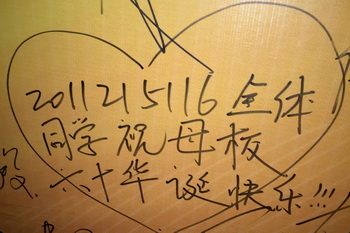 2011215116全体
同学祝母板
六十华诞快乐!!!